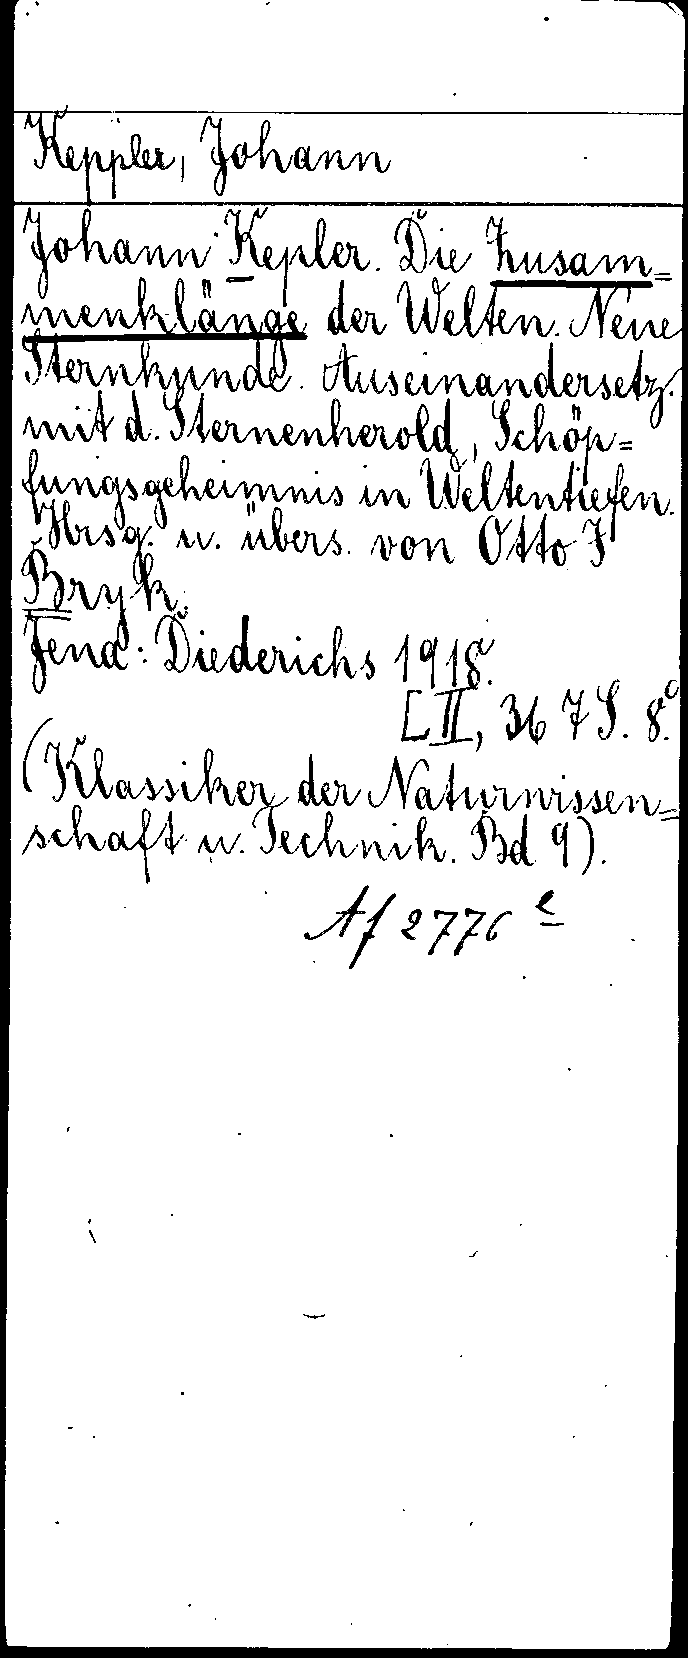 Keppler, Johann
Johann Kepler. Die Zusam=
menklänge der Welten. Neue
Sternkunde. Auseinandersetz.
mit d. Sternenherold, Schöp=
fungsgeheimnis in Weltentiefen.
Hrsg. u. übers. von Otto J
Bryk.
Jena: Diederichs 1918.
LII, 367 S. 8°.
(Klassiker der Naturwissen=
schaft u. Technik. Bd 9).
Af 2776 e